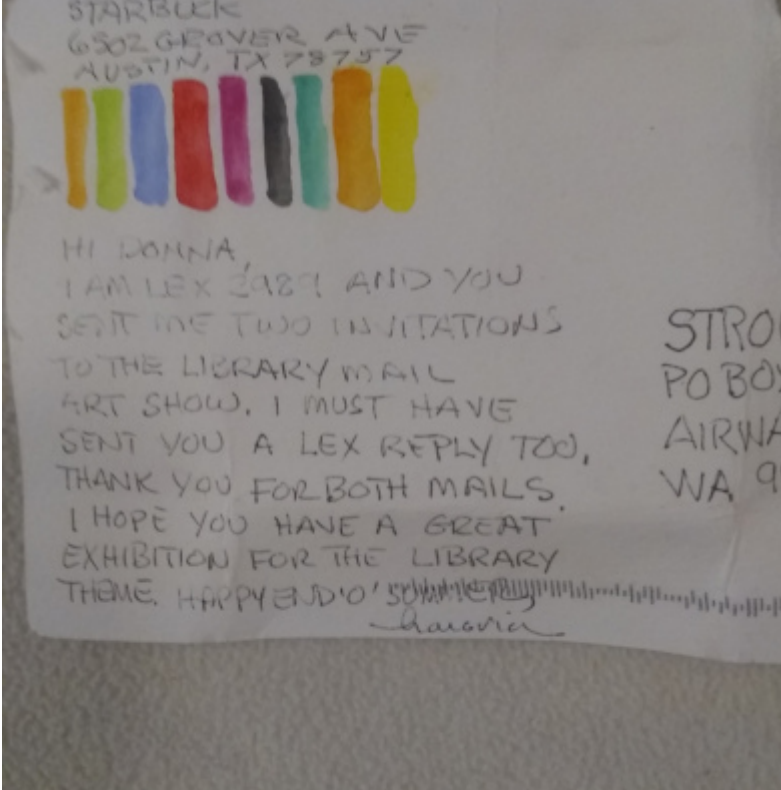 STARBUCK
6502 GROVER AVE
AUSTIN, TX 78757
HI DONNA,
I AM LEX 2989 AND YOU
SENT ME TWO INVITATIONS
TO THE LIBRARY MAIL
ART SHOW. I MUST HAVE
SENT YOU A LEX REPLY TOO.
THANK YOU FOR BOTH MAILS.
I HOPE YOU HAVE A GREAT
EXHIBITION FOR THE LIBRARY
THEME. HAPPY END 'O'
STRO
PO BO
AIRWA
WA 9